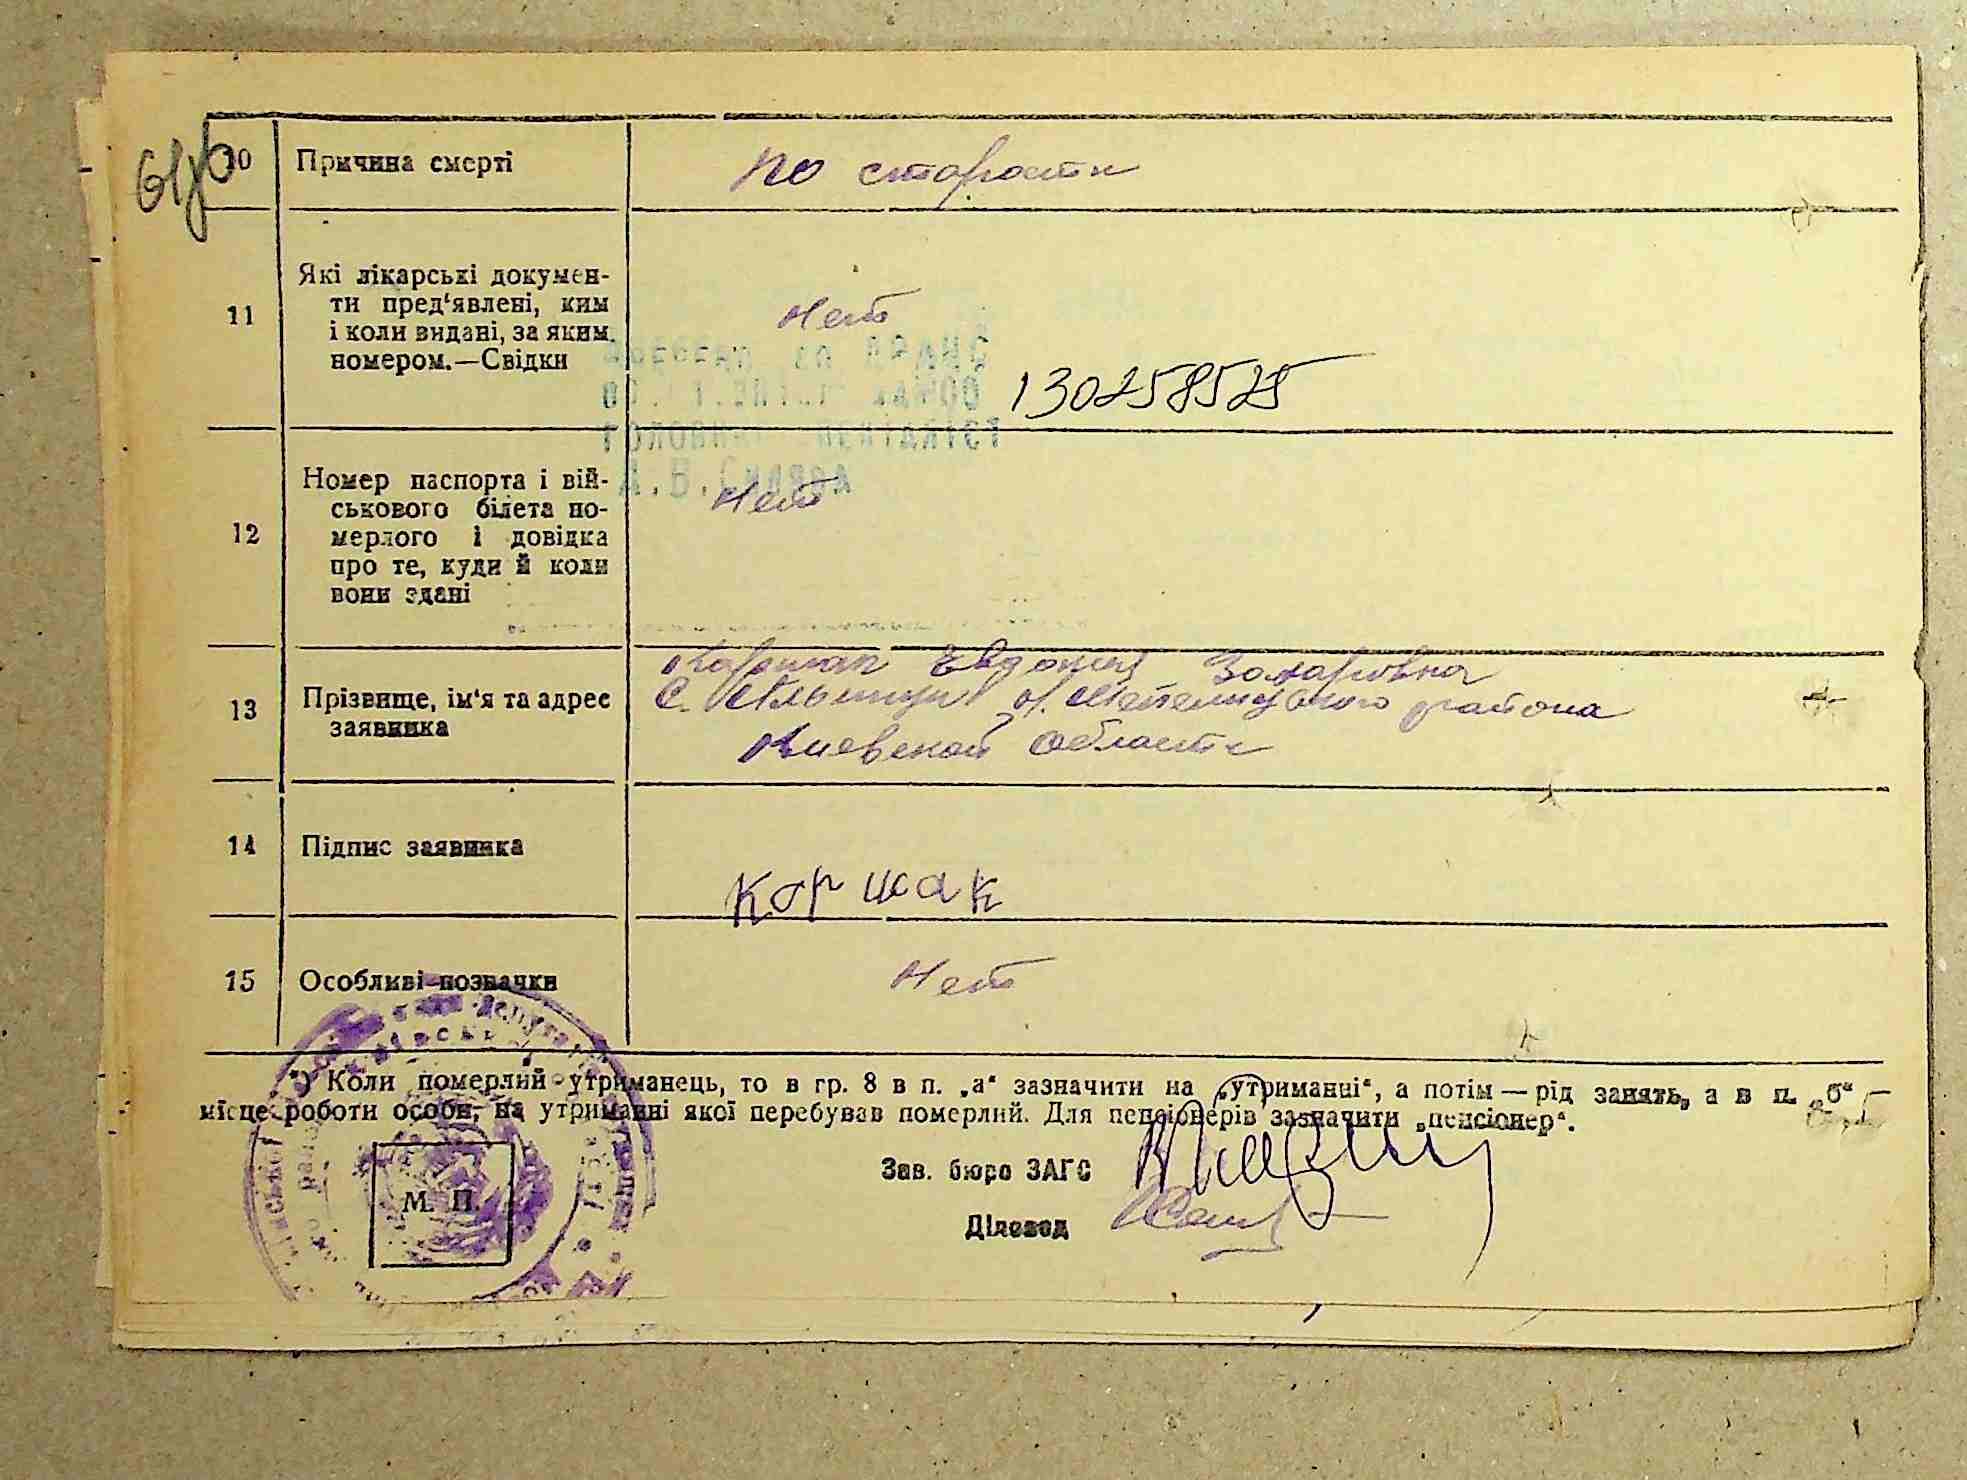 10 Причина смерті по старости
11 Які лікарські докумен-
ти пред‘явлені, ким
і коли видані, за яким
номером.—Свідки
Нет
130258525
12 Номер паспорта і вій-
ськового білета по-
мерлого і довідка
про те, куди й коли
вони здані
Нет
13 Прізвище, ім‘я та адрес
заявника
Коршак Евдокия Захаровна
с. района
Киевской области
14 Підпис заявника
Коршак
15 Особливі позначки Нет
Коли померлий утриманець, то в гр. 8 в п. „а“ зазначити на „утриманні“, а потім — рід занять, а в п. „б“
місце роботи особи, на утриманні якої перебував померлий. Для пенсіонерів зазначити „пенсіонер“.
Зав. бюро ЗАГС
М. П.
Діловод